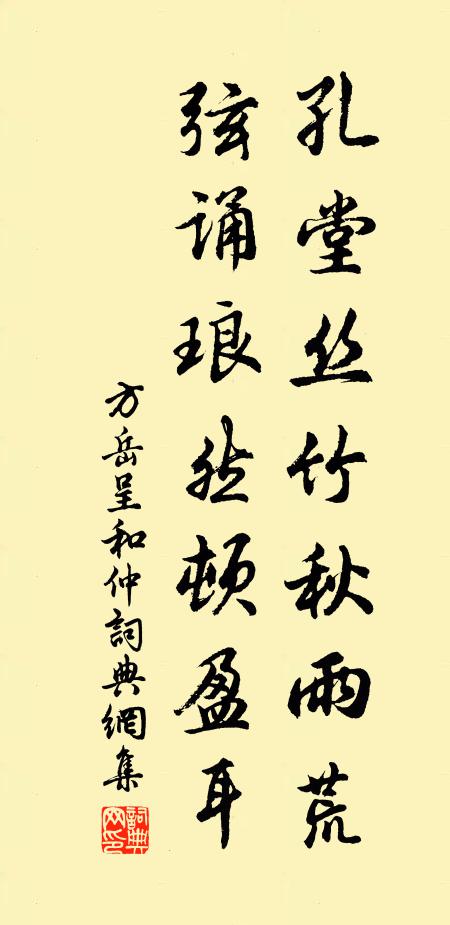 孔堂丝竹秋雨荒
弦诵琅然顿盈耳
方岳呈和仲詞典網集
詞典网印